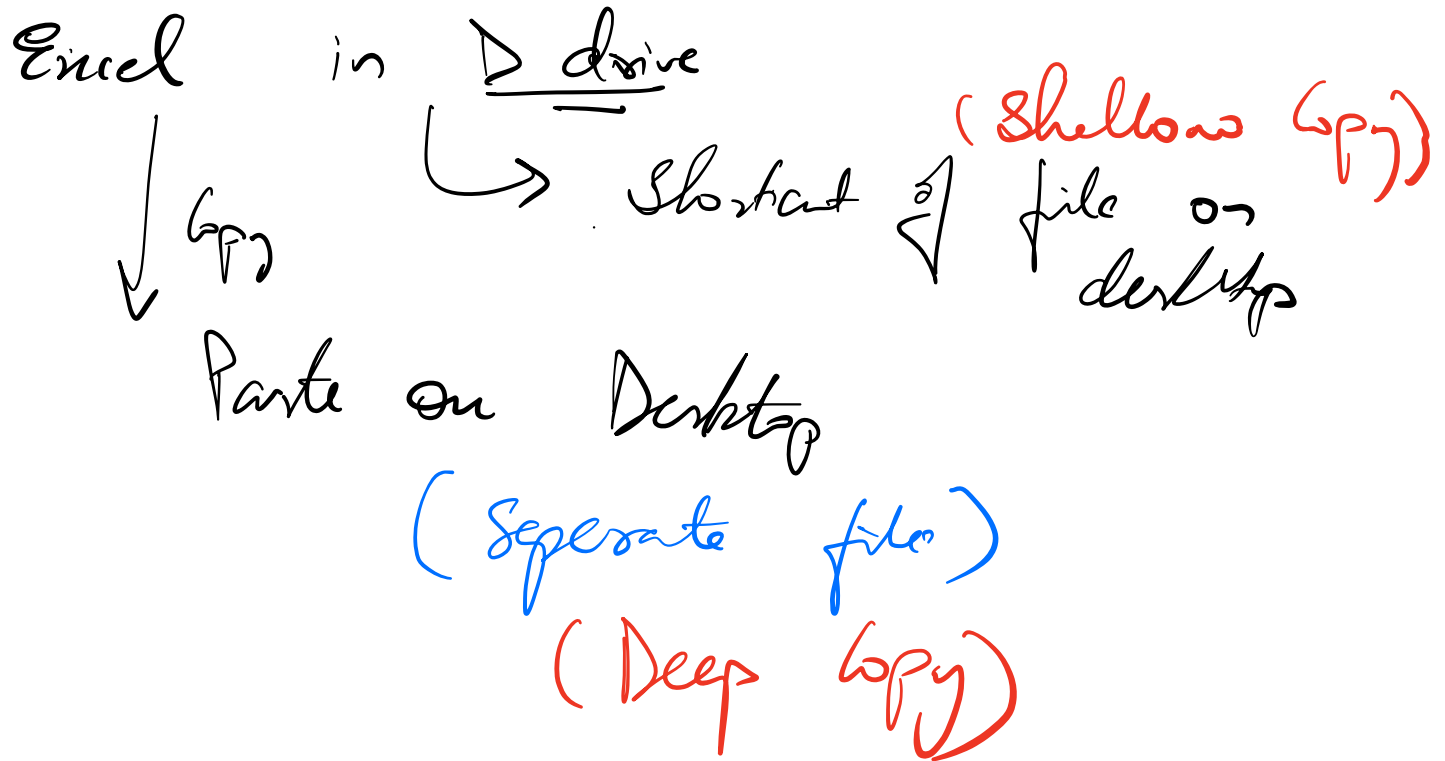 Excel in D drive
(Shellow Copy)
Shortcut of file on
desktop
Copy
Paste on Desktop
(Seperate file)
(Deep Copy)